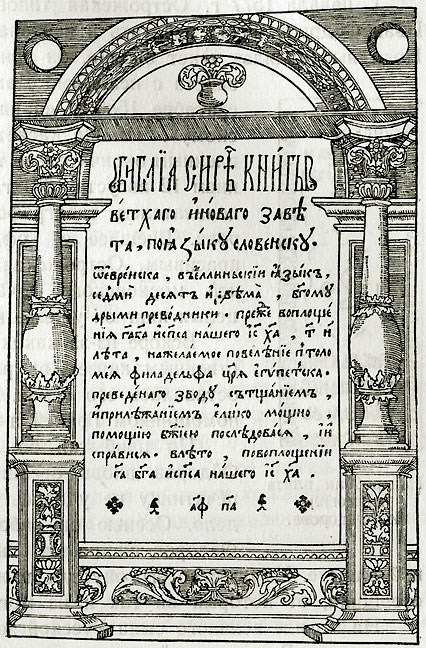 БИБЛІА СИРѢ҃Ч КНИГЫ
ВЕТХАГО И НОВАГО ЗАВѢ
ТА. ПО ЯЗЫКУ СЛОВЕНСКУ.
ѿ еврейска, въ еллиньскіи языкъ,
седмидесятъ и двѣма, б҃гому
дрыми преводники. преже воплоще
нїя г҃а б҃га и сп҃са нашего і҃с х҃а,
лѣта, на желаемое повелѣнїе птоло
мея филаделфа ц҃ря египетска.
преведенаго зводу съ тщанїемъ,
и прилѣжанїемъ елико мощно,
помощїю б҃жїею послѣдовася, и и
справися. в лѣто, по воплощенїи
г҃а б҃га и сп҃са нашего і҃с х҃а.
҂аф п҃а